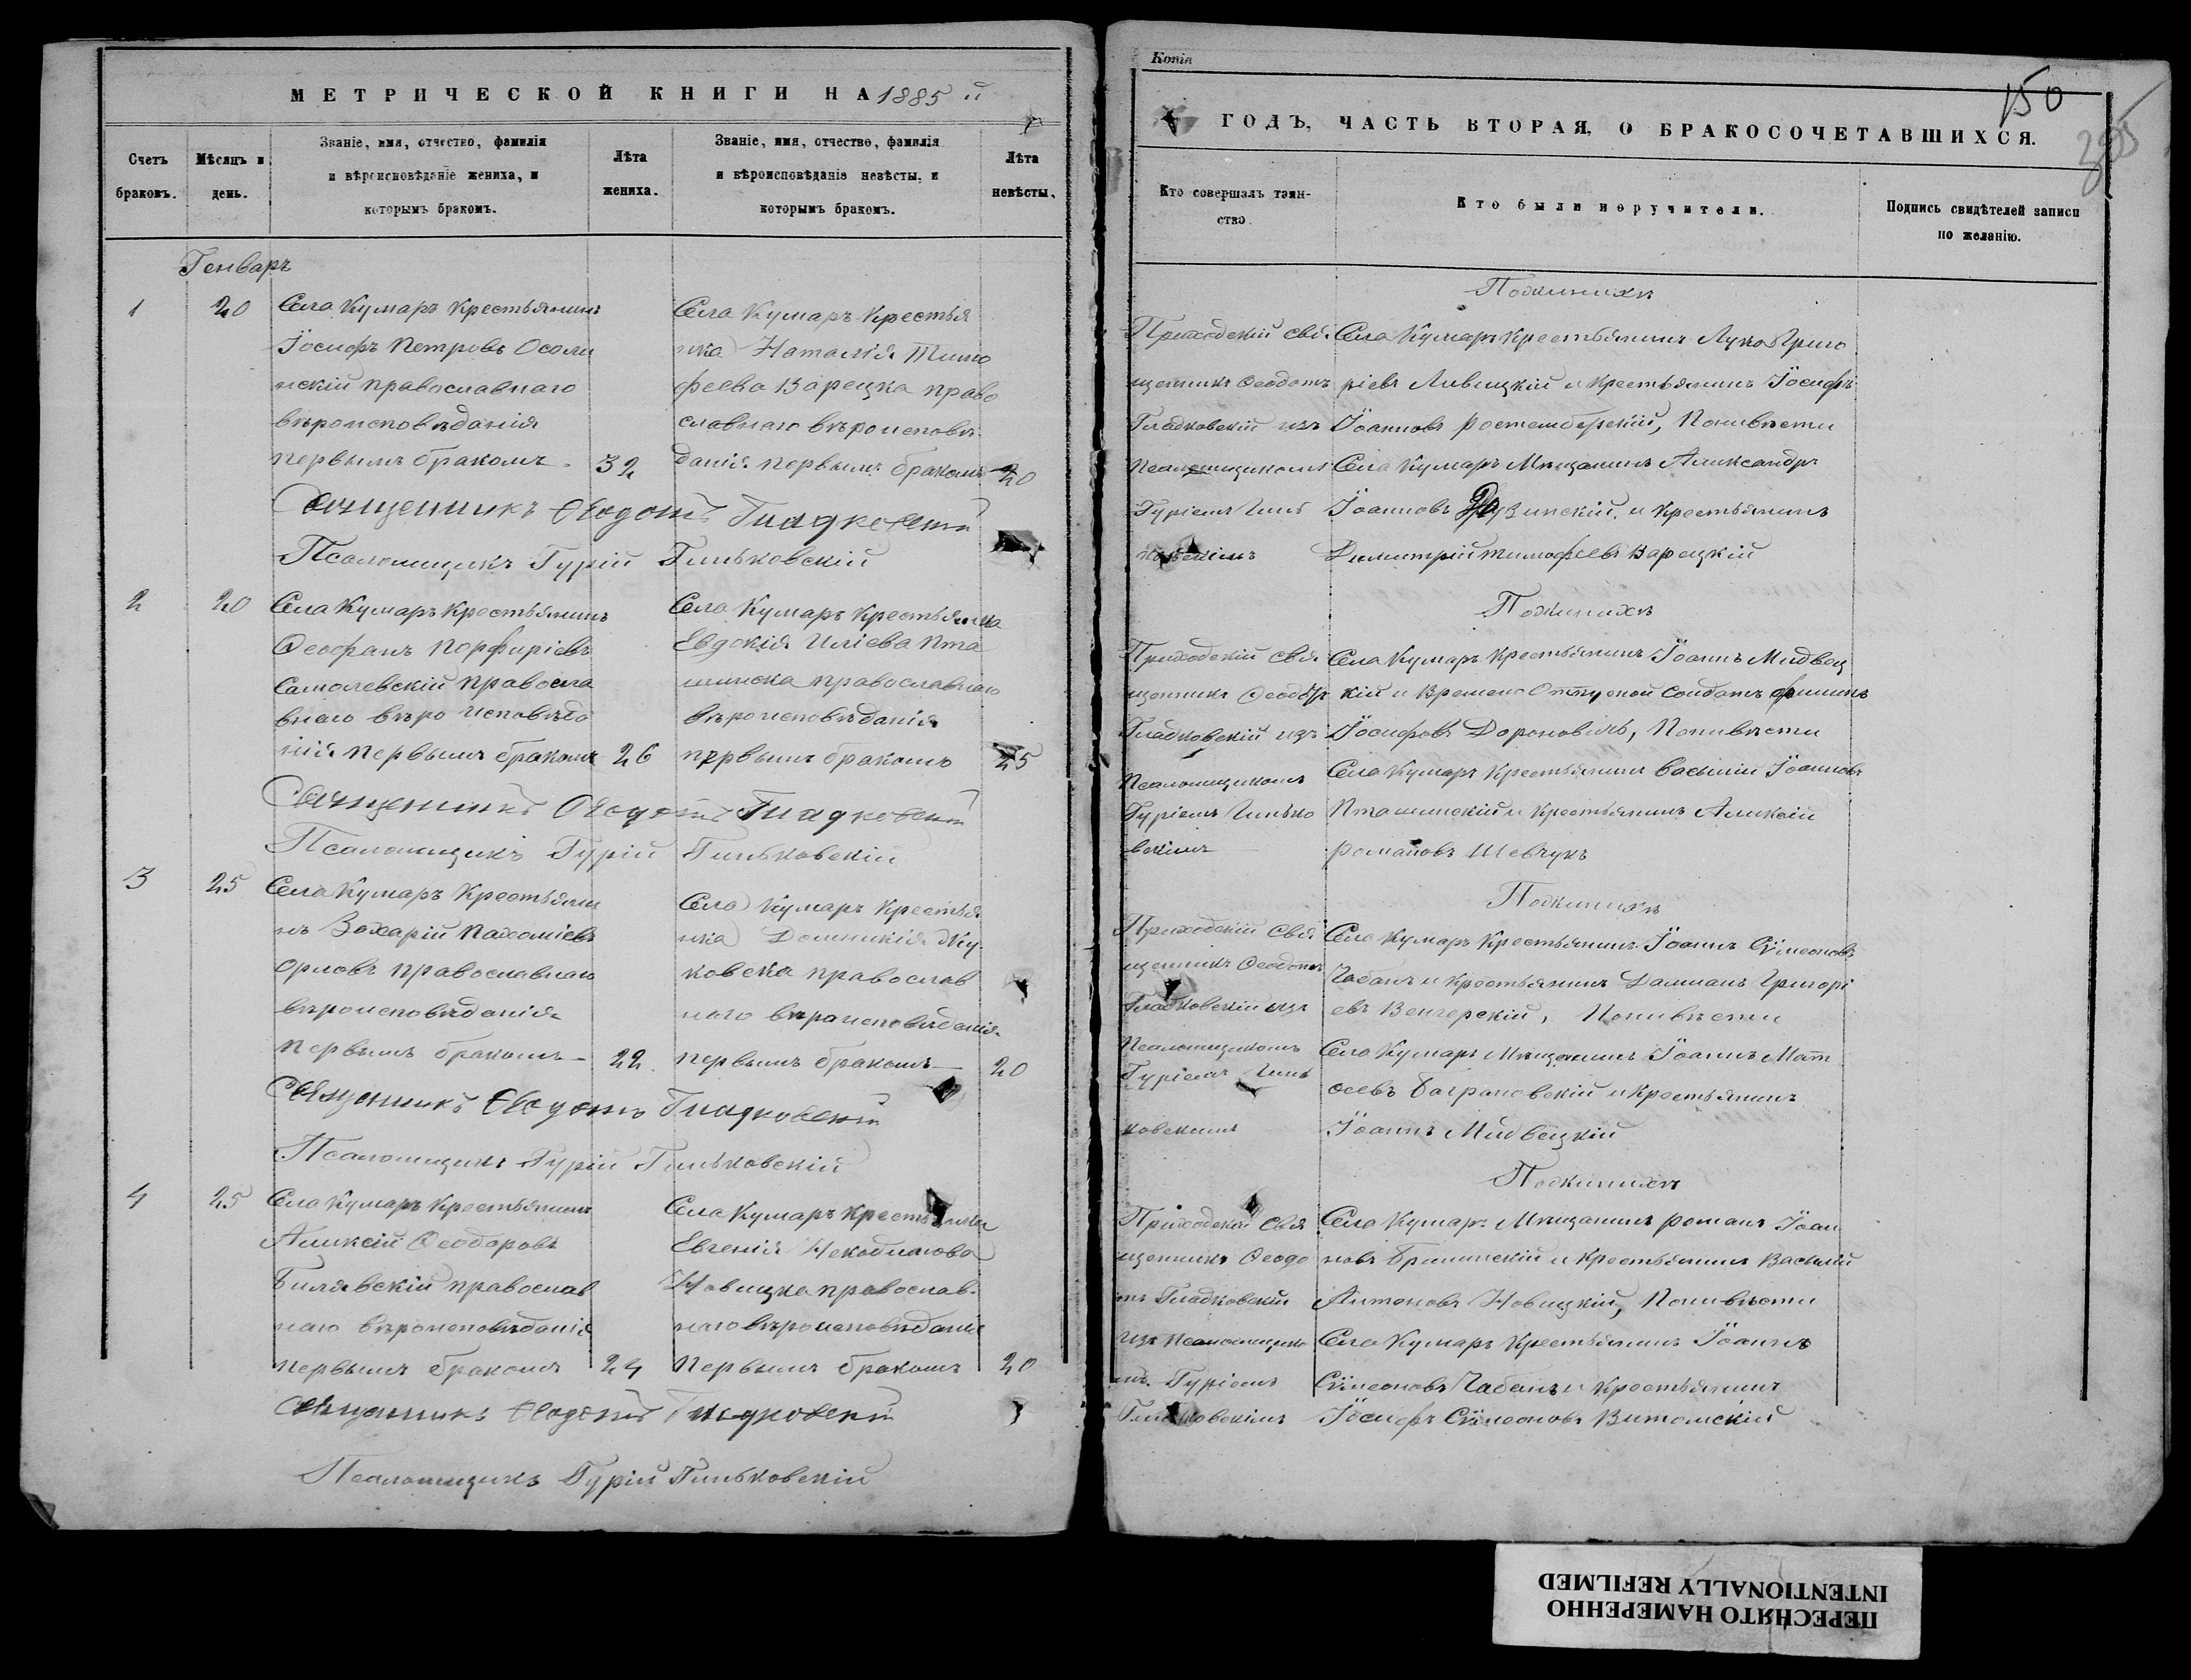 МЕТРИЧЕСКОЙ КНИГИ НА 1885 й
Счетъ браковъ.
Мѣсяцъ и день.
Званіе, имя, отчество, фамилія
и вѣроисповѣданіе жениха, и
которымъ бракомъ.
Лѣта жениха.
Званіе, имя, отчество, фамилія
и вѣроисповѣданіе невѣсты, и
которымъ бракомъ.
Лѣта невѣсты.
Генваръ
1
20
Села Кумаръ Крестьянинъ
Іосифъ Петровъ Осоли
нскій православнаго
вѣроисповѣданія
первымъ бракомъ
32
Села Кумаръ Крестья
нка Наталія Тимо
феева Варецка право
славнаго вѣроисповѣ
данія первымъ бракомъ
20
Священникъ Ѳеодотъ Гладковскій
Псаломщикъ Гурій Гиньковскій
2
20
Села Кумаръ Крестьянинъ
Ѳеофанъ Порфиріевъ
Самолевскій правосла
внаго вѣроисповѣда
нія первымъ бракомъ
26
Села Кумаръ Крестьянка
Евдокія Иліева Пта
шинска православнаго
вѣроисповѣданія
первымъ бракомъ
25
Священникъ Ѳеодотъ Гладковскій
Псаломщикъ Гурій Гиньковскій
3
25
Села Кумаръ Крестьяни
нъ Захарій Пахоміевъ
Орловъ православнаго
вѣроисповѣданія
первымъ бракомъ
22
Села Кумаръ Крестья
нка Домникія
ковска православ
наго вѣроисповѣданія
первымъ бракомъ
20
Священникъ Ѳеодотъ Гладковскій
Псаломщикъ Гурій Гиньковскій
4
25
Села Кумаръ Крестьянинъ
Алексій Ѳеодоровъ
Билявскій православ
наго вѣроисповѣданія
первымъ бракомъ
24
Села Кумаръ Крестьянка
Евгенія Некодимова
Новицка православ
наго вѣроисповѣданія
первымъ бракомъ
20
Священникъ Ѳеодотъ Гладковскій
Псаломщикъ Гурій Гиньковскій
Копія
150
ГОДЪ, ЧАСТЬ ВТОРАЯ, О БРАКОСОЧЕТАВШИХСЯ.
Кто совершалъ таин-
ство.
Кто были поручители.
Подпись свидѣтелей записи
по желанію.
Приходскій Свя
щенникъ Ѳеодотъ
Гладковскій изъ
Псаломщикомъ
Гуріемъ Гинь
ковскимъ
По жинихѣ
Села Кумаръ Крестьянинъ Лука Григо
ріевъ Ливицкій и Крестьянинъ Іосифъ
Іоанновъ Ростемберскій, По нивѣсти
Села Кумаръ Мѣщанинъ Александръ
Іоанновъ и Крестьянинъ
Димитрій Тимофеевъ Варецкій
Приходскій Свя
щенникъ Ѳеодотъ
Гладковскій изъ
Псаломщикомъ
Гуріемъ Гинько
вскимъ
По жинихѣ
Села Кумаръ Крестьянинъ Іоаннъ Мидвец
кій и Времено Отпускной Солдатъ Филипъ
Іосифовъ Дороновичъ, По нивѣсти
Села Кумаръ Крестьянинъ Василій Іоанновъ
Пташинскій и Крестьянинъ Аликсій
Романовъ Шевчукъ
Приходскій Свя
щенникъ Ѳеодотъ
Гладковскій изъ
Псаломщикомъ
Гуріемъ Гинь
ковскимъ
По жинихѣ
Села Кумаръ Крестьянинъ Іоаннъ Сѵмеоновъ
Чабанъ и Крестьянинъ Даміанъ Григорі
евъ Венгерскій, По нивѣсти
Села Кумаръ Мѣщанинъ Іоаннъ Мат
ѳеевъ Баграновскій и Крестьянинъ
Іоаннъ Мидвецкій
Приходскій Свя
щенникъ Ѳеодо
тъ Гладковскій
изъ Псаломщико
мъ Гуріемъ
Гиньковскимъ
По жинихѣ
Села Кумаръ Мѣщанинъ Романъ Іоан
новъ Брилинскій и Крестьянинъ Василій
Антоновъ Новицкій, По нивѣсти
Села Кумаръ Крестьянинъ Іоаннъ
Сѵмеоновъ Чабанъ и Крестьянинъ
Іосифъ Сѵмеоновъ Витомскій
ПЕРЕСНЯТО НАМЕРЕННО
INTENTIONALLY REFILMED